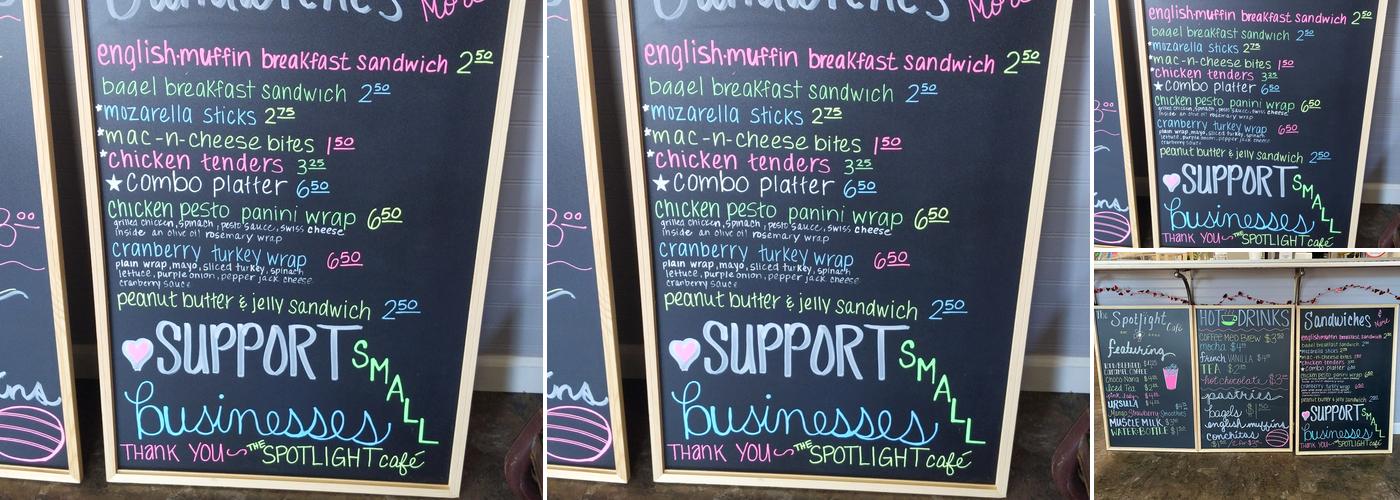 Sandwiches
More
english-muffin breakfast sandwich 2.50
bagel breakfast sandwich 2.50
mozarella sticks 2.75
mac-n-cheese bites 1.50
chicken tenders 3.25
combo platter 6.50
chicken pesto panini wrap 6.50
grilled chicken, spinach, pesto sauce, swiss cheese
inside an olive oil rosemary wrap
cranberry turkey wrap 6.50
plain wrap, mayo, sliced turkey, spinach
lettuce, purple onion, pepper jack cheese
cranberry sauce
peanut butter & jelly sandwich 2.50
SUPPORT
SMALL
businesses
THANK YOU ~ THE SPOTLIGHT café
Sandwiches
More
english-muffin breakfast sandwich 2.50
bagel breakfast sandwich 2.50
mozarella sticks 2.75
mac-n-cheese bites 1.50
chicken tenders 3.25
combo platter 6.50
chicken pesto panini wrap 6.50
grilled chicken, spinach, pesto sauce, swiss cheese
inside an olive oil rosemary wrap
cranberry turkey wrap 6.50
plain wrap, mayo, sliced turkey, spinach
lettuce, purple onion, pepper jack cheese
cranberry sauce
peanut butter & jelly sandwich 2.50
SUPPORT
SMALL
businesses
THANK YOU ~ THE SPOTLIGHT café
english-muffin breakfast sandwich 2.50
bagel breakfast sandwich 2.50
mozarella sticks 2.75
mac-n-cheese bites 1.50
chicken tenders 3.25
combo platter 6.50
chicken pesto panini wrap 6.50
grilled chicken, spinach, pesto sauce, swiss cheese
inside an olive oil rosemary wrap
cranberry turkey wrap 6.50
plain wrap, mayo, sliced turkey, spinach
lettuce, purple onion, pepper jack cheese
cranberry sauce
peanut butter & jelly sandwich 2.50
SUPPORT
SMALL
businesses
THANK YOU ~ THE SPOTLIGHT café
The Spotlight Café
featuring
CARAMEL COFFEE
Choco Nana
Iced Tea
pink lady
URSULA
Mango Strawberry Smoothies
MUSCLE MILK
WATER BOTTLE
HOT DRINKS
COFFEE MED BREW
mocha
french VANILLA
TEA
hot chocolate
pastries
bagels
english muffins
conchitas
Sandwiches & More
english-muffin breakfast sandwich
bagel breakfast sandwich
mozarella sticks
mac-n-cheese bites
chicken tenders
combo platter
chicken pesto panini wrap
cranberry turkey wrap
peanut butter & jelly sandwich
SUPPORT
SMALL
businesses
THANK YOU ~ THE SPOTLIGHT café